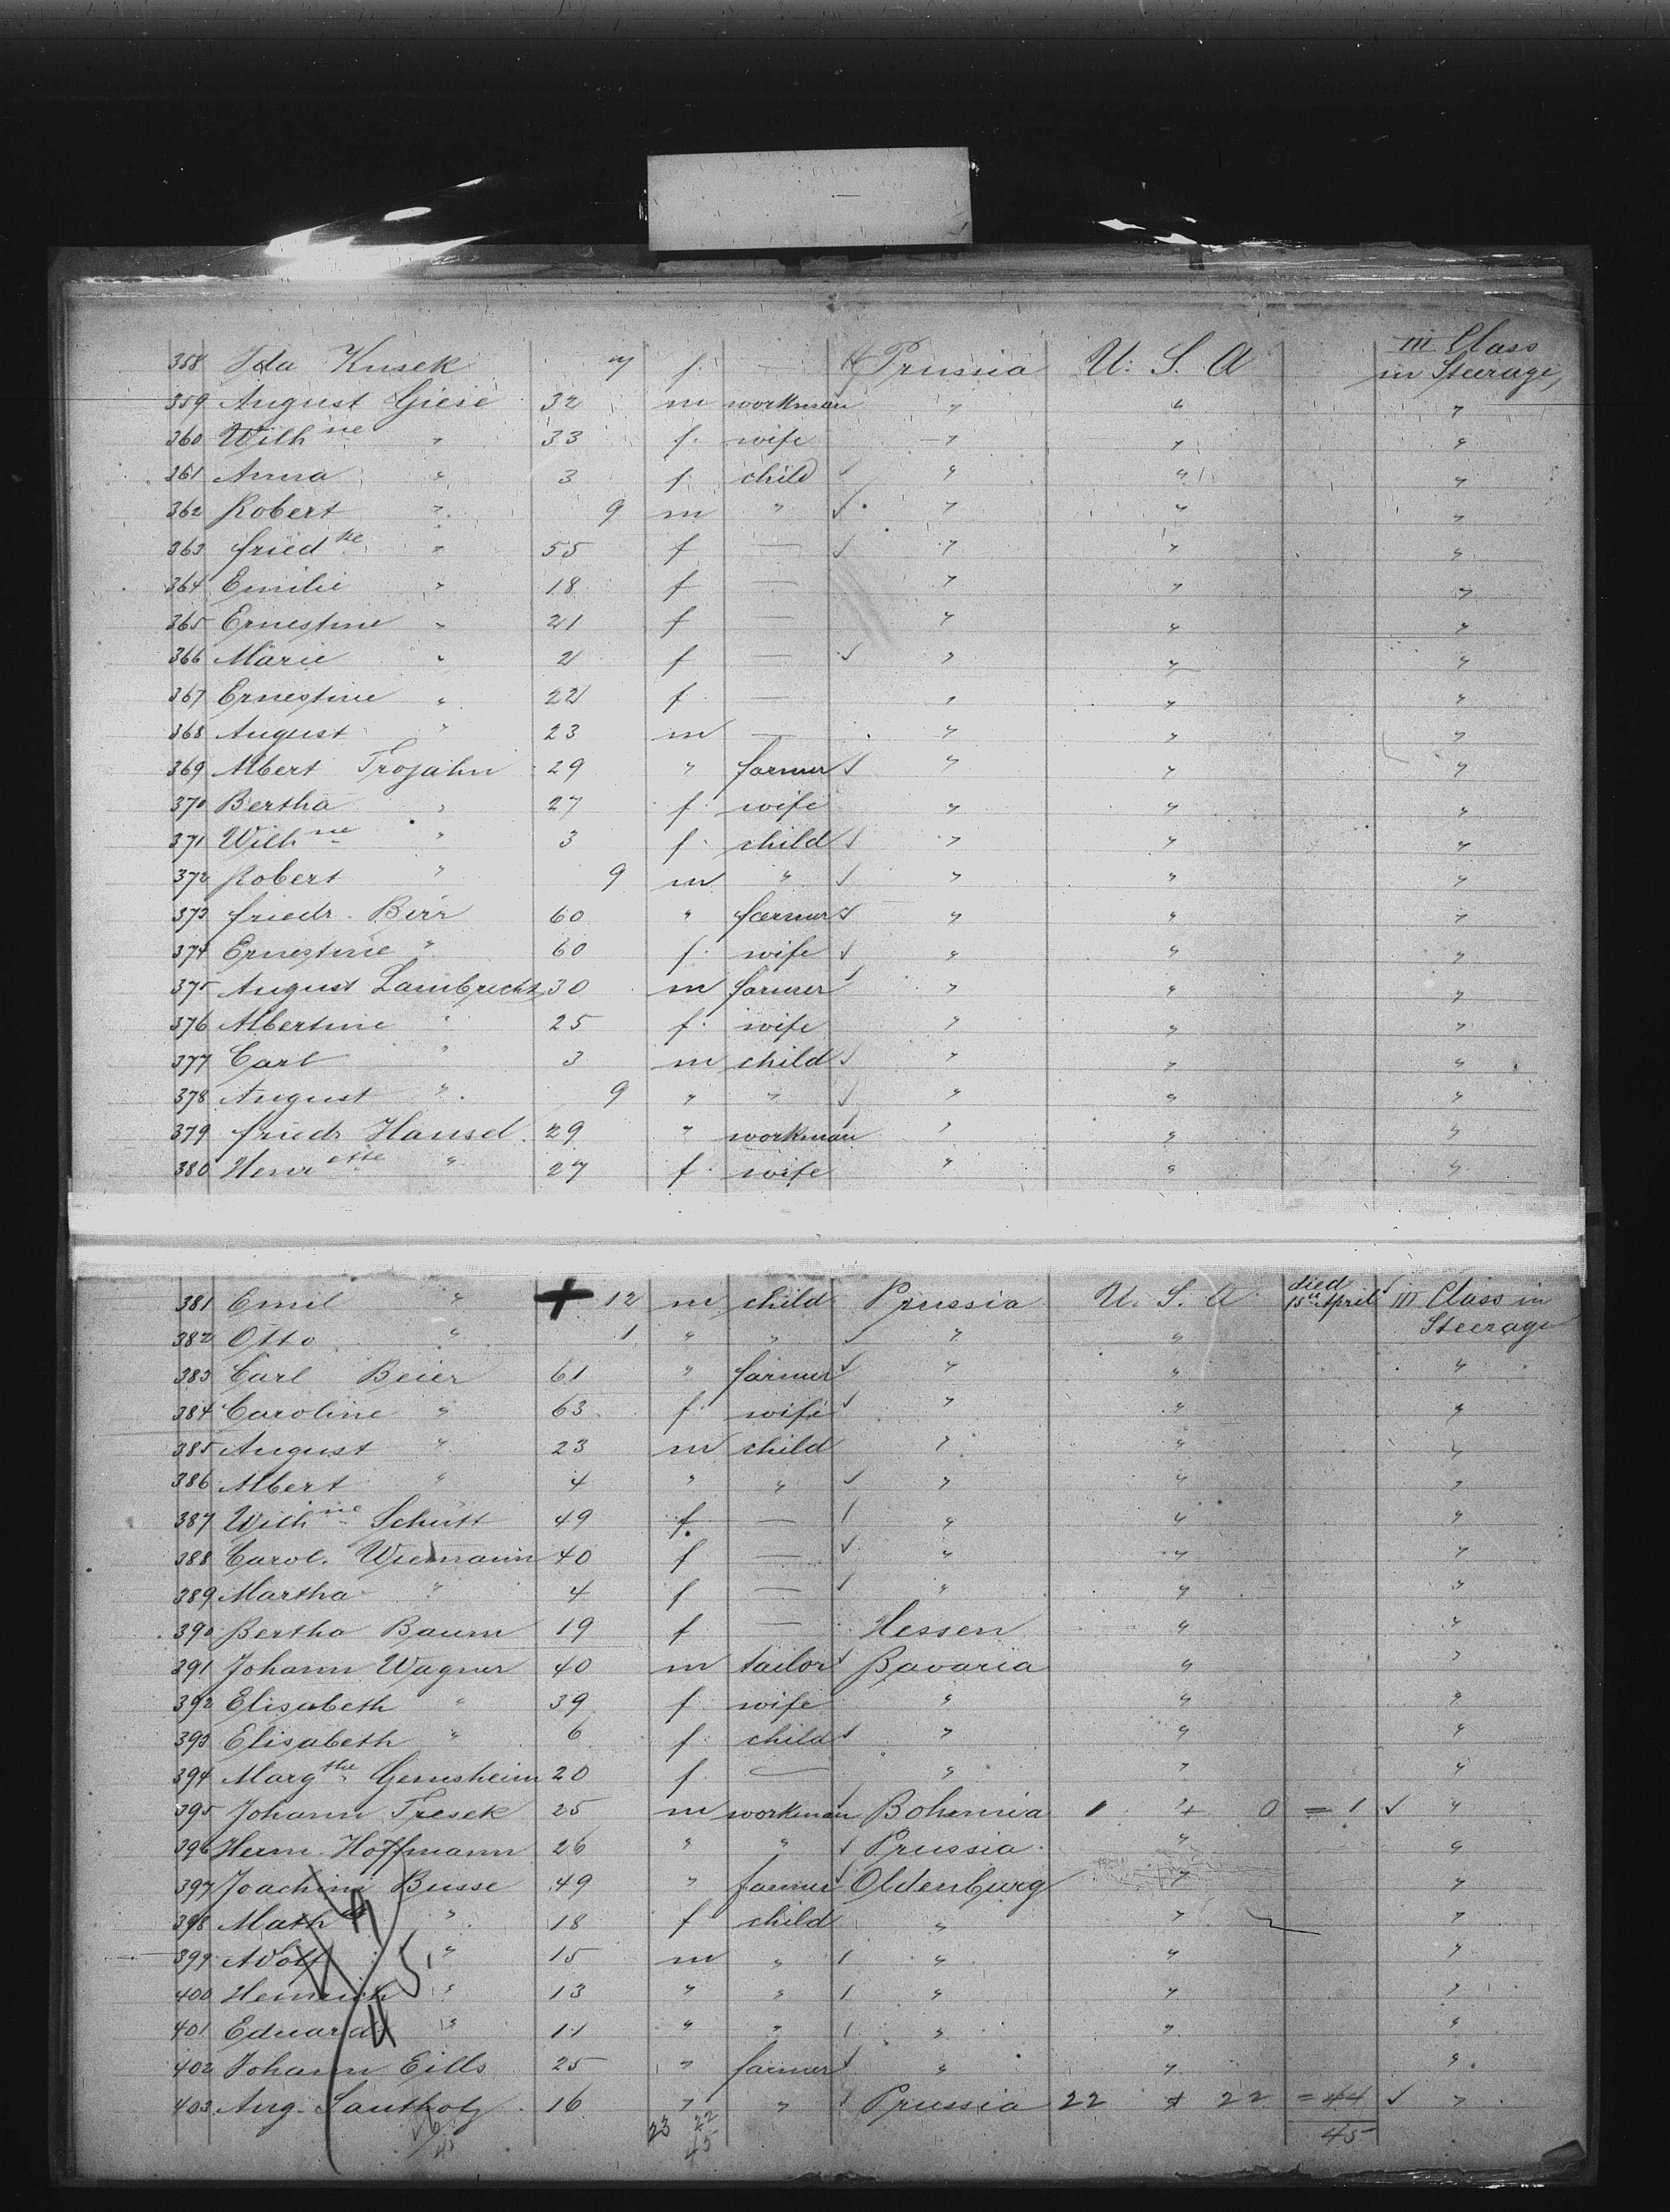 III Class
358 Ida Kusek 7 f. — Prussia U. S. A in Steerage,
359 August Giese 32 m workman " " "
360 Wilh ne " 33 f. wife " " "
361 Anna " 3 f. child " " "
362 Robert " 9 m " " " "
363 Fried ke " 55 f — " " "
364 Emilie " 18 f — " " "
365 Ernestine " 21 f — " " "
366 Marie " 2 f — " " "
367 Ernestine " 22 f. — " " "
368 August " 23 m — " " "
369 Albert Trojahn 29 " farmer " " "
370 Bertha " 27 f. wife " " "
371 Wilh ne " 3 f. child " " "
372 Robert " 9 m " " " "
373 Friedr. Birr 60 " farmer " " "
374 Ernestine " 60 f. wife " " "
375 August Lambrecht 30 m farmer " " "
376 Albertine " 25 f. wife " " "
377 Carl " 3 m child " " "
378 August " 9 " " " " "
379 Friedr Hansel 29 " workman " " "
380 Henr ette " 27 f. wife " " "
died
381 Emil " + 12 m child Prussia U. S. A 15th April III Class in
Steerage
382 Otto " 1 " " " "
383 Carl Beier 61 " farmer " " "
384 Caroline " 63 f. wife " " "
385 August " 23 m child " " "
386 Albert " 4 " " " " "
387 Wilh ne Schütt 49 f — " " "
388 Carol. Wiemann 40 f — " " "
389 Martha " 4 f — " " "
390 Bertha Baum 19 f — Hessen " "
391 Johann Wagner 40 m tailor Bavaria " "
392 Elisabeth " 39 f. wife " " "
393 Elisabeth " 6 f. child " " "
394 Marg the Gernsheim 20 f. — " " "
395 Johann Tresek 25 m workman Bohemia 1 + 0 = 1 ✓ "
396 Herm. Hoffmann 26 " " Prussia " "
397 Joachim Busse 49 " farmer Oldenburg " "
398 Math " 18 f child " " "
399 Adolf " 15 m " " " "
400 Heinrich " 13 " " " " "
401 Eduard " 11 " " " " "
402 Johann Eills 25 " farmer " " "
403 Aug. Santholz 16 " " Prussia 22 + 22 = 44 ✓ "
23 22 45
45